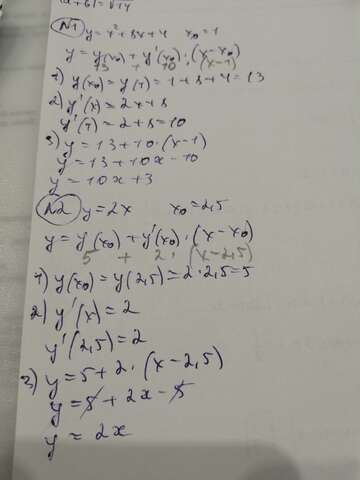 |a+b|=√14
№1 y=x²+8x+4 x₀=1
y=y(x₀)+y'(x₀)·(x-x₀)
13 + 10 · (x-1)
1) y(x₀)=y(1)=1+8+4=13
2) y'(x)=2x+8
y'(1)=2+8=10
3) y=13+10·(x-1)
y=13+10x-10
y=10x+3
№2 y=2x x₀=2,5
y=y(x₀)+y'(x₀)·(x-x₀)
5 + 2 · (x-2,5)
1) y(x₀)=y(2,5)=2·2,5=5
2) y'(x)=2
y'(2,5)=2
3) y=5+2·(x-2,5)
y=5+2x-5
y=2x